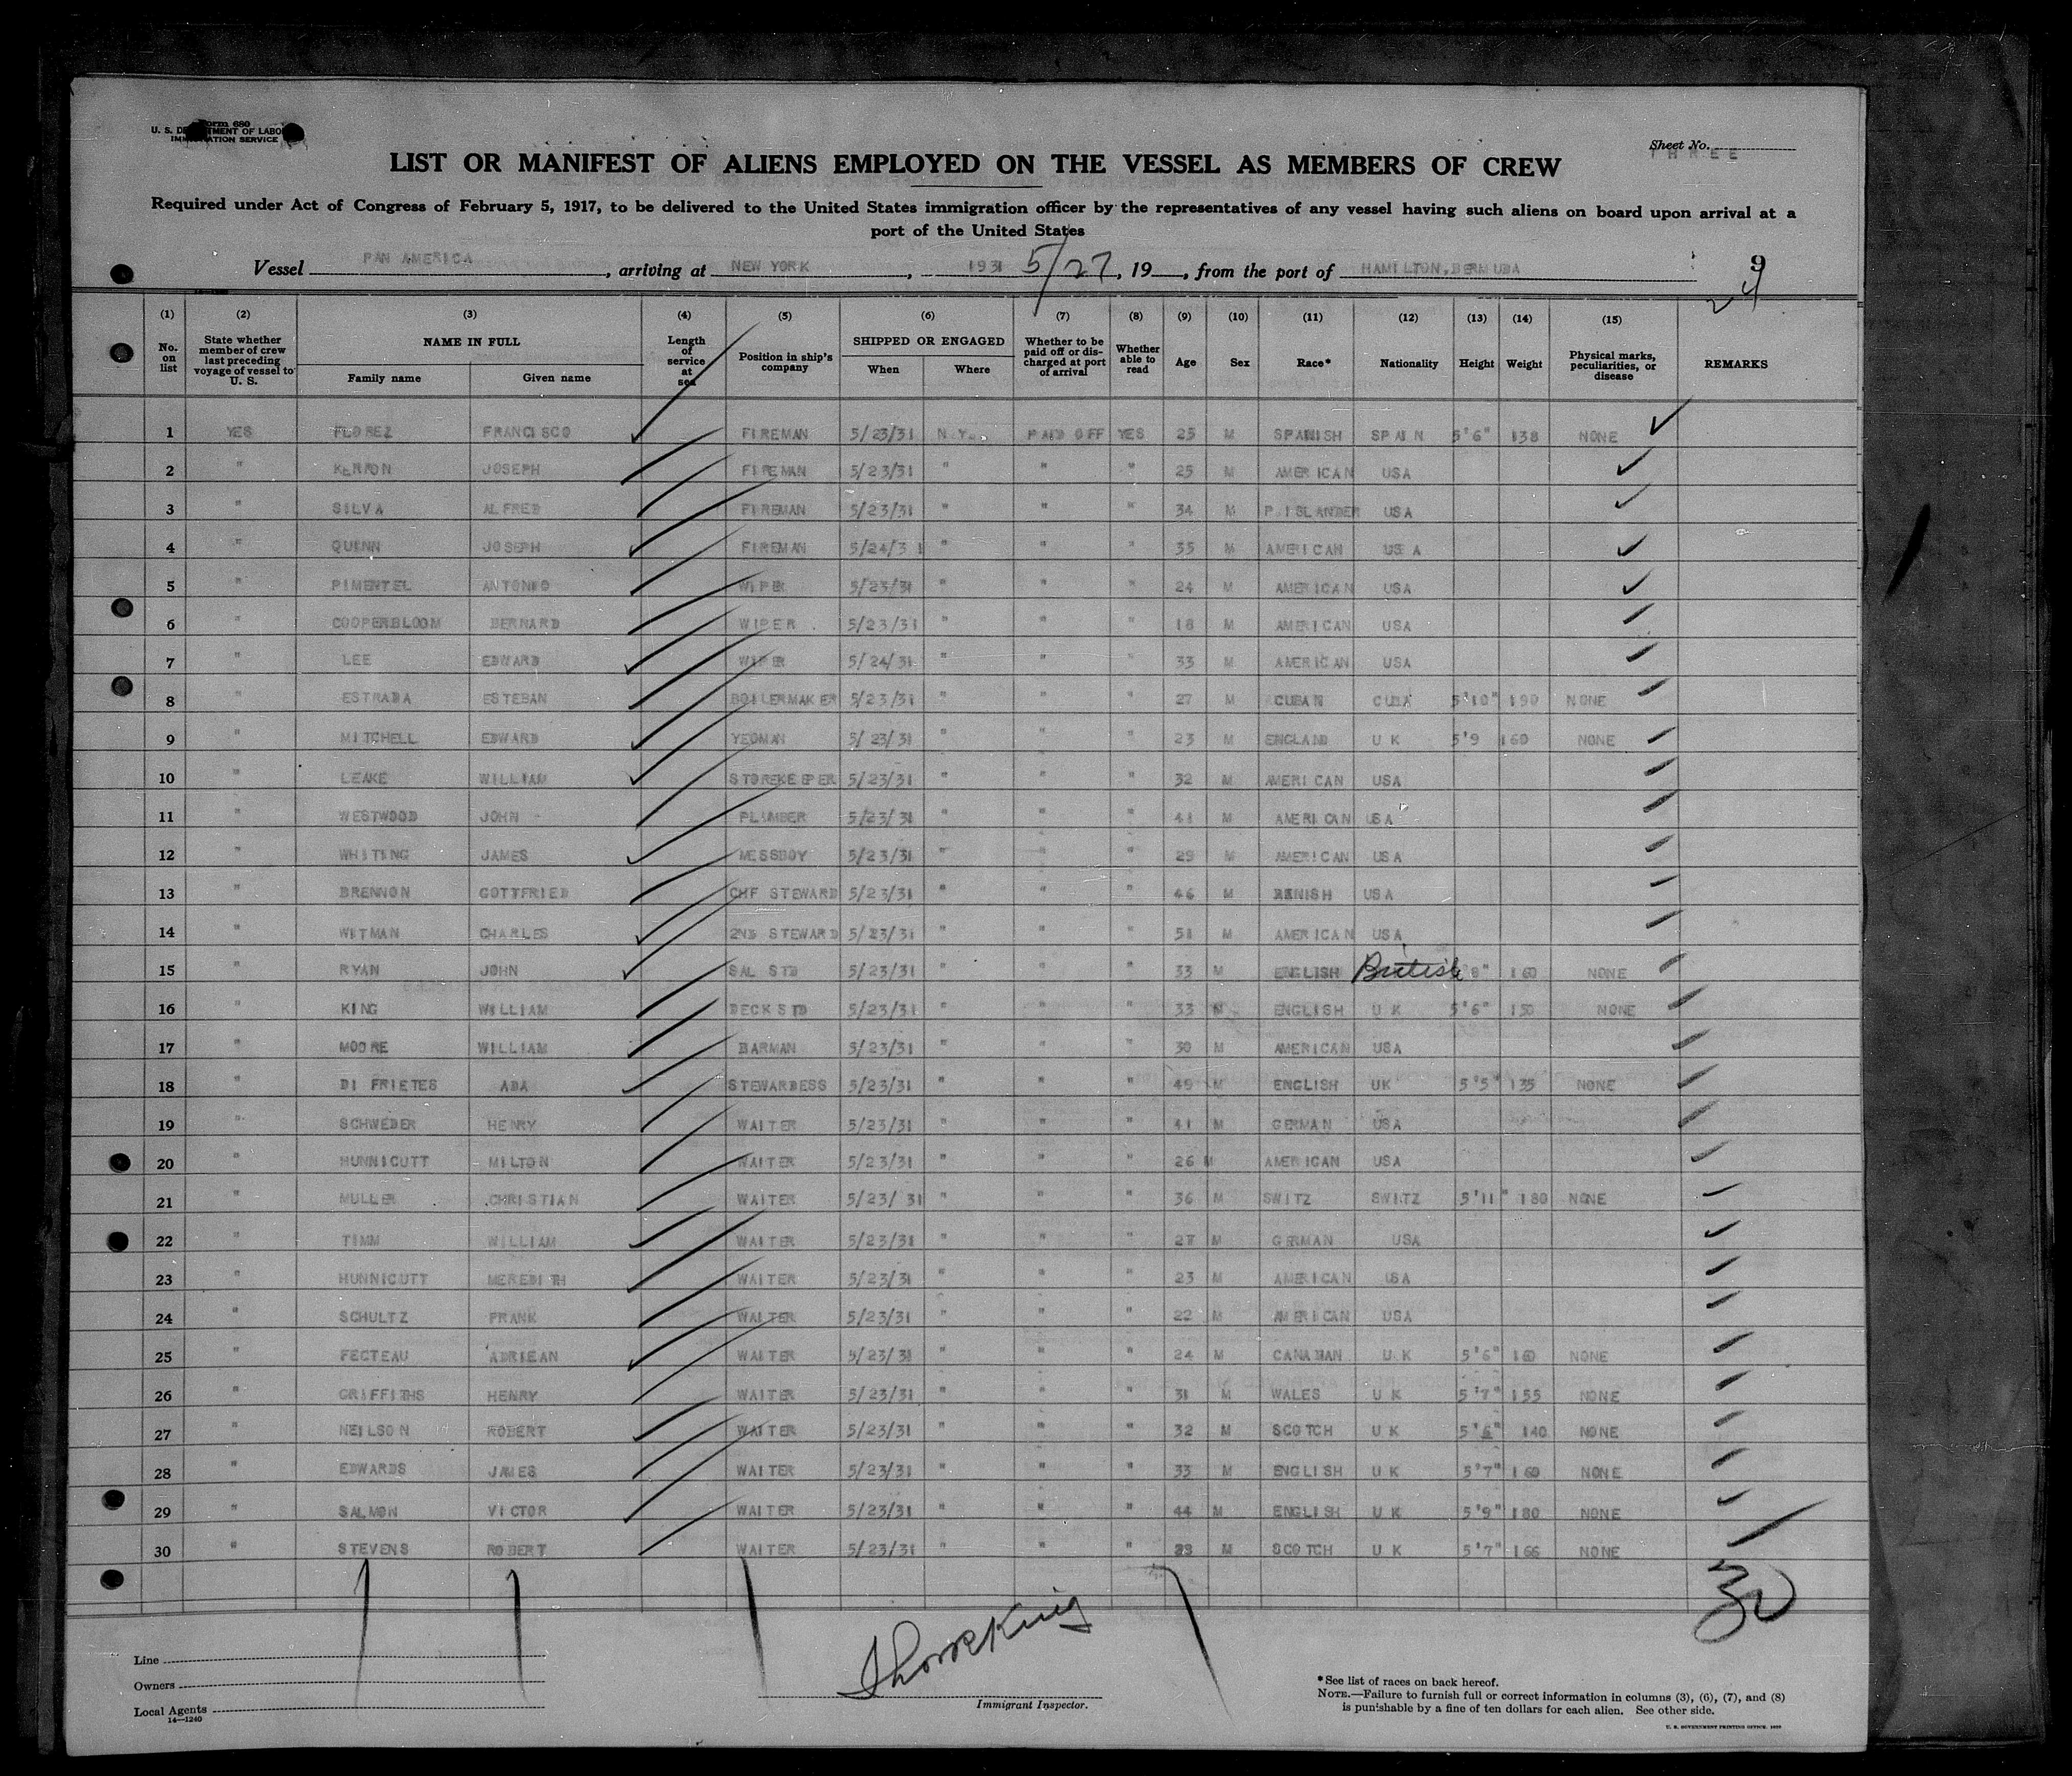 Form 680
U. S. DEPARTMENT OF LABOR
IMMIGRATION SERVICE
Sheet No. THREE
LIST OR MANIFEST OF ALIENS EMPLOYED ON THE VESSEL AS MEMBERS OF CREW
Required under Act of Congress of February 5, 1917, to be delivered to the United States immigration officer by the representatives of any vessel having such aliens on board upon arrival at a
port of the United States
Vessel PAN AMERICA, arriving at NEW YORK, 1931 5/27, 19__, from the port of HAMILTON, BERMUDA
9
24
(1) (2) (3) (4) (5) (6) (7) (8) (9) (10) (11) (12) (13) (14) (15)
No. on list State whether member of crew last preceding voyage of vessel to U. S. NAME IN FULL Family name Given name Length of service at sea Position in ship's company SHIPPED OR ENGAGED When Where Whether to be paid off or discharged at port of arrival Whether able to read Age Sex Race* Nationality Height Weight Physical marks, peculiarities, or disease REMARKS
1 YES FLOREZ FRANCISCO FIREMAN 5/23/31 N.Y. PAID OFF YES 25 M SPANISH SPAIN 5'6" 138 NONE
2 " KERRON JOSEPH FIREMAN 5/23/31 " " " 25 M AMERICAN USA
3 " SILVA ALFRED FIREMAN 5/23/31 " " " 34 M P.ISLANDER USA
4 " QUINN JOSEPH FIREMAN 5/24/31 " " " 35 M AMERICAN USA
5 " PIMENTEL ANTONIO WIPER 5/23/31 " " " 24 M AMERICAN USA
6 " COOPERBLOOM BERNARD WIPER 5/23/31 " " " 18 M AMERICAN USA
7 " LEE EDWARD WIPER 5/24/31 " " " 33 M AMERICAN USA
8 " ESTRADA ESTEBAN BOILERMAKER 5/23/31 " " " 27 M CUBAN CUBA 5'10" 190 NONE
9 " MITCHELL EDWARD YEOMAN 5/23/31 " " " 23 M ENGLAND U K 5'9 160 NONE
10 " LEAKE WILLIAM STOREKEEPER 5/23/31 " " " 32 M AMERICAN USA
11 " WESTWOOD JOHN PLUMBER 5/23/31 " " " 41 M AMERICAN USA
12 " WHITING JAMES MESSBOY 5/23/31 " " " 29 M AMERICAN USA
13 " BRENNON GOTTFRIED CHF STEWARD 5/23/31 " " " 46 M DENISH USA
14 " WITMAN CHARLES 2ND STEWARD 5/23/31 " " " 51 M AMERICAN USA
15 " RYAN JOHN SAL STD 5/23/31 " " " 33 M ENGLISH British 8" 160 NONE
16 " KING WILLIAM DECK STD 5/23/31 " " " 33 M ENGLISH U K 5'6" 150 NONE
17 " MOORE WILLIAM BARMAN 5/23/31 " " " 30 M AMERICAN USA
18 " DI FRIETES ADA STEWARDESS 5/23/31 " " " 49 M ENGLISH UK 5'5" 135 NONE
19 " SCHWEDER HENRY WAITER 5/23/31 " " " 41 M GERMAN USA
20 " HUNNICUTT MILTON WAITER 5/23/31 " " " 26 M AMERICAN USA
21 " MULLER CHRISTIAN WAITER 5/23/31 " " " 36 M SWITZ SWITZ 5'11" 180 NONE
22 " TIMM WILLIAM WAITER 5/23/31 " " " 27 M GERMAN USA
23 " HUNNICUTT MEREDITH WAITER 5/23/31 " " " 23 M AMERICAN USA
24 " SCHULTZ FRANK WAITER 5/23/31 " " " 22 M AMERICAN USA
25 " FECTEAU ADRIEAN WAITER 5/23/31 " " " 24 M CANADIAN U.K 5'6" 160 NONE
26 " GRIFFITHS HENRY WAITER 5/23/31 " " " 31 M WALES U K 5'7" 155 NONE
27 " NEILSON ROBERT WAITER 5/23/31 " " " 32 M SCOTCH U K 5'6" 140 NONE
28 " EDWARDS JAMES WAITER 5/23/31 " " " 33 M ENGLISH U K 5'7" 160 NONE
29 " SALMON VICTOR WAITER 5/23/31 " " " 44 M ENGLISH U K 5'9" 180 NONE
30 " STEVENS ROBERT WAITER 5/23/31 " " " 23 M SCOTCH U K 5'7" 166 NONE
30
Line
Owners
Local Agents
14—1240
Immigrant Inspector.
*See list of races on back hereof.
NOTE.—Failure to furnish full or correct information in columns (3), (6), (7), and (8)
is punishable by a fine of ten dollars for each alien. See other side.